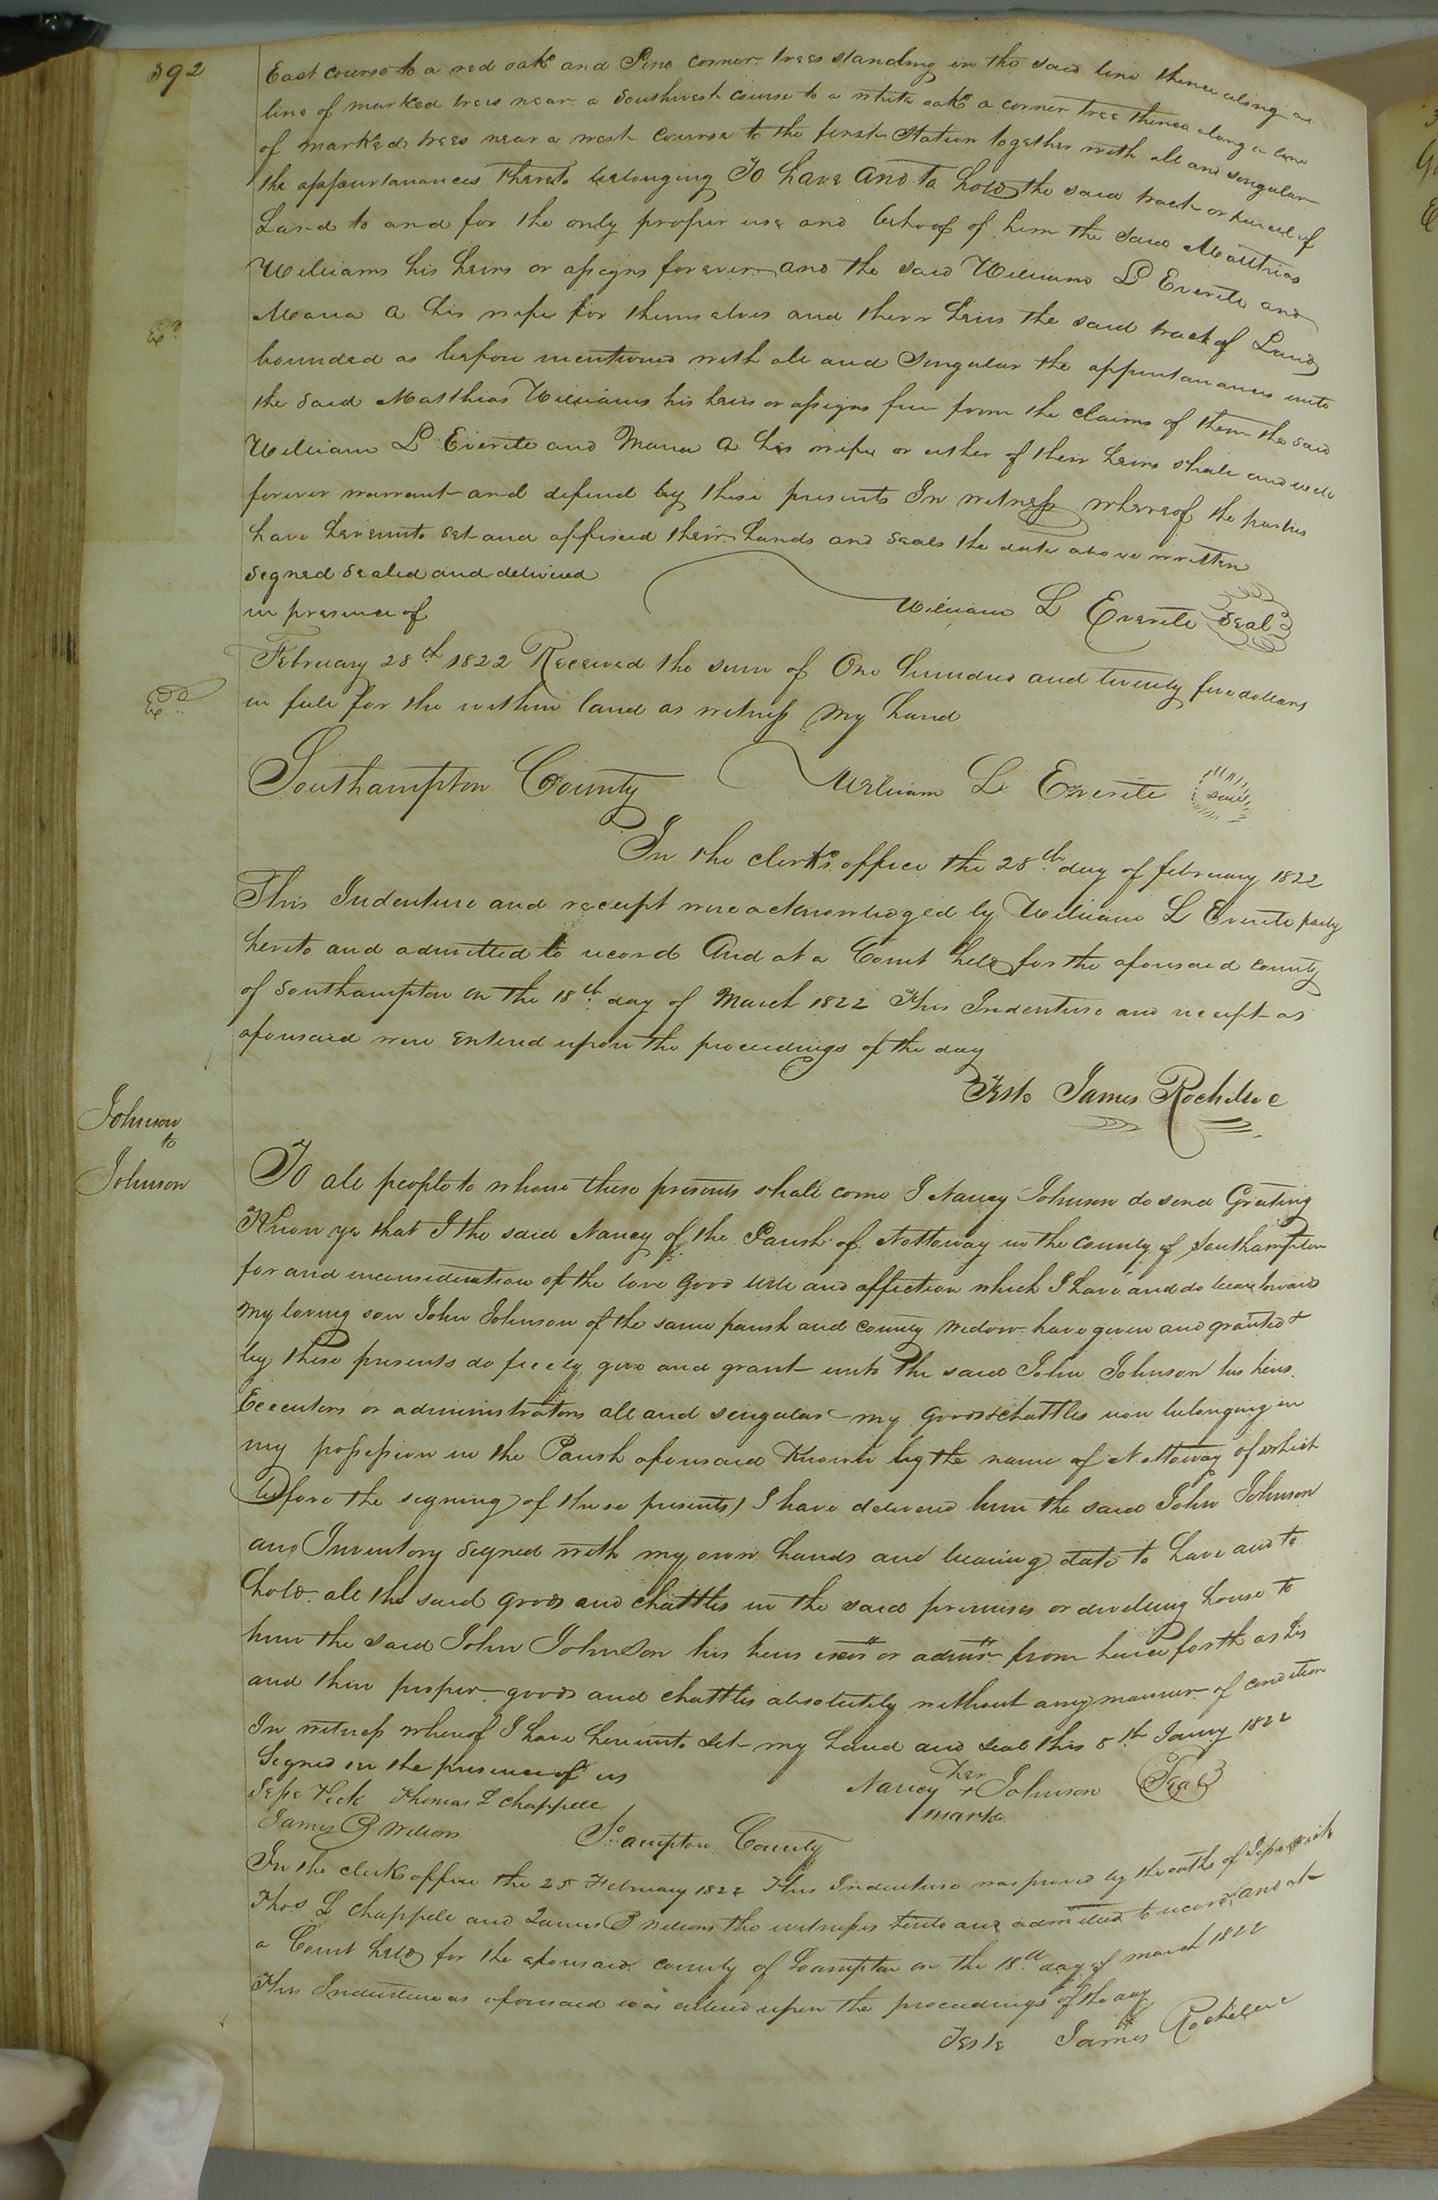 392
East course to a red oak and Pine corner trees standing in the said line thence along a
line of marked trees near a Southwest course to a white oak a corner tree thence along a line
of marked trees near a west course to the first Station together with all and singular
the appurtanances thereto belonging To have and to hold the said tract or parcel of
Land to and for the only proper use and behoof of him the said Matthias
Williams his heirs or assigns forever and the said William L Everite and
Maria A his wife for themselves and their heirs the said tract of Land
bounded as before mentioned with all and Singular the appurtanances unto
the said Matthias Williams his heirs or assigns free from the claims of them the said
William L Everite and Maria A his wife or either of their heirs shall and will
forever warrant and defend by these presents In witness whereof the parties
have hereunto set and affixed their hands and seals the date above written
Signed Sealed and delivered
in presence of
William L Everite Seal
February 28th 1822 Received the sum of One hundred and twenty five dollars
in full for the within land as witness my hand
Southampton County
William L Everite Seal
In the clerks office the 28th day of february 1822
This Indenture and receipt were acknowledged by William L Everite party
hereto and admitted to record And at a Court held for the aforesaid county
of Southampton on the 18th day of March 1822 This Indenture and receipt as
aforesaid were entered upon the proceedings of the day
Teste James Rochelle c
Johnson
to
Johnson
To all people to whome these presents shall come I Nancy Johnson do send Greeting
Know ye that I the said Nancy of the Parish of Nottoway in the county of Southampton
for and inconsideration of the love Good will and affection which I have and do bear towards
my loving son John Johnson of the same parish and county widow have given and granted &
by these presents do freely give and grant unto the said John Johnson his heirs
Executors or administrators all and singular my goods & chattles now belonging in
my possession in the Parish aforesaid Known by the name of Nottoway of which
(before the signing of these presents) I have delivered him the said John Johnson
and Inventory Signed with my own hands and bearing date to have and to
hold all the said goods and chattles in the said premises or dwelling house to
him the said John Johnson his heirs exors or admrs from hence forth as his
and their proper goods and chattles absolutely without any manner of condition
In witness whereof I have hereunto set my hand and seal this 5th Janry 1822
Signed in the presence of us
Nancy her + Johnson Seal
mark
Jesse Vick Thomas L Chappell
James B Nelson
So. ampton County
In the clerks office the 25 February 1822 This Indenture was proved by the oaths of Jesse Vick
Thos L Chappell and James B Nelson the witnesses and admitted to record and at
a Court held for the aforesaid county of Soampton on the 18th day of march 1822
This Indenture as aforesaid was entered upon the proceedings of the day
Teste James Rochelle c